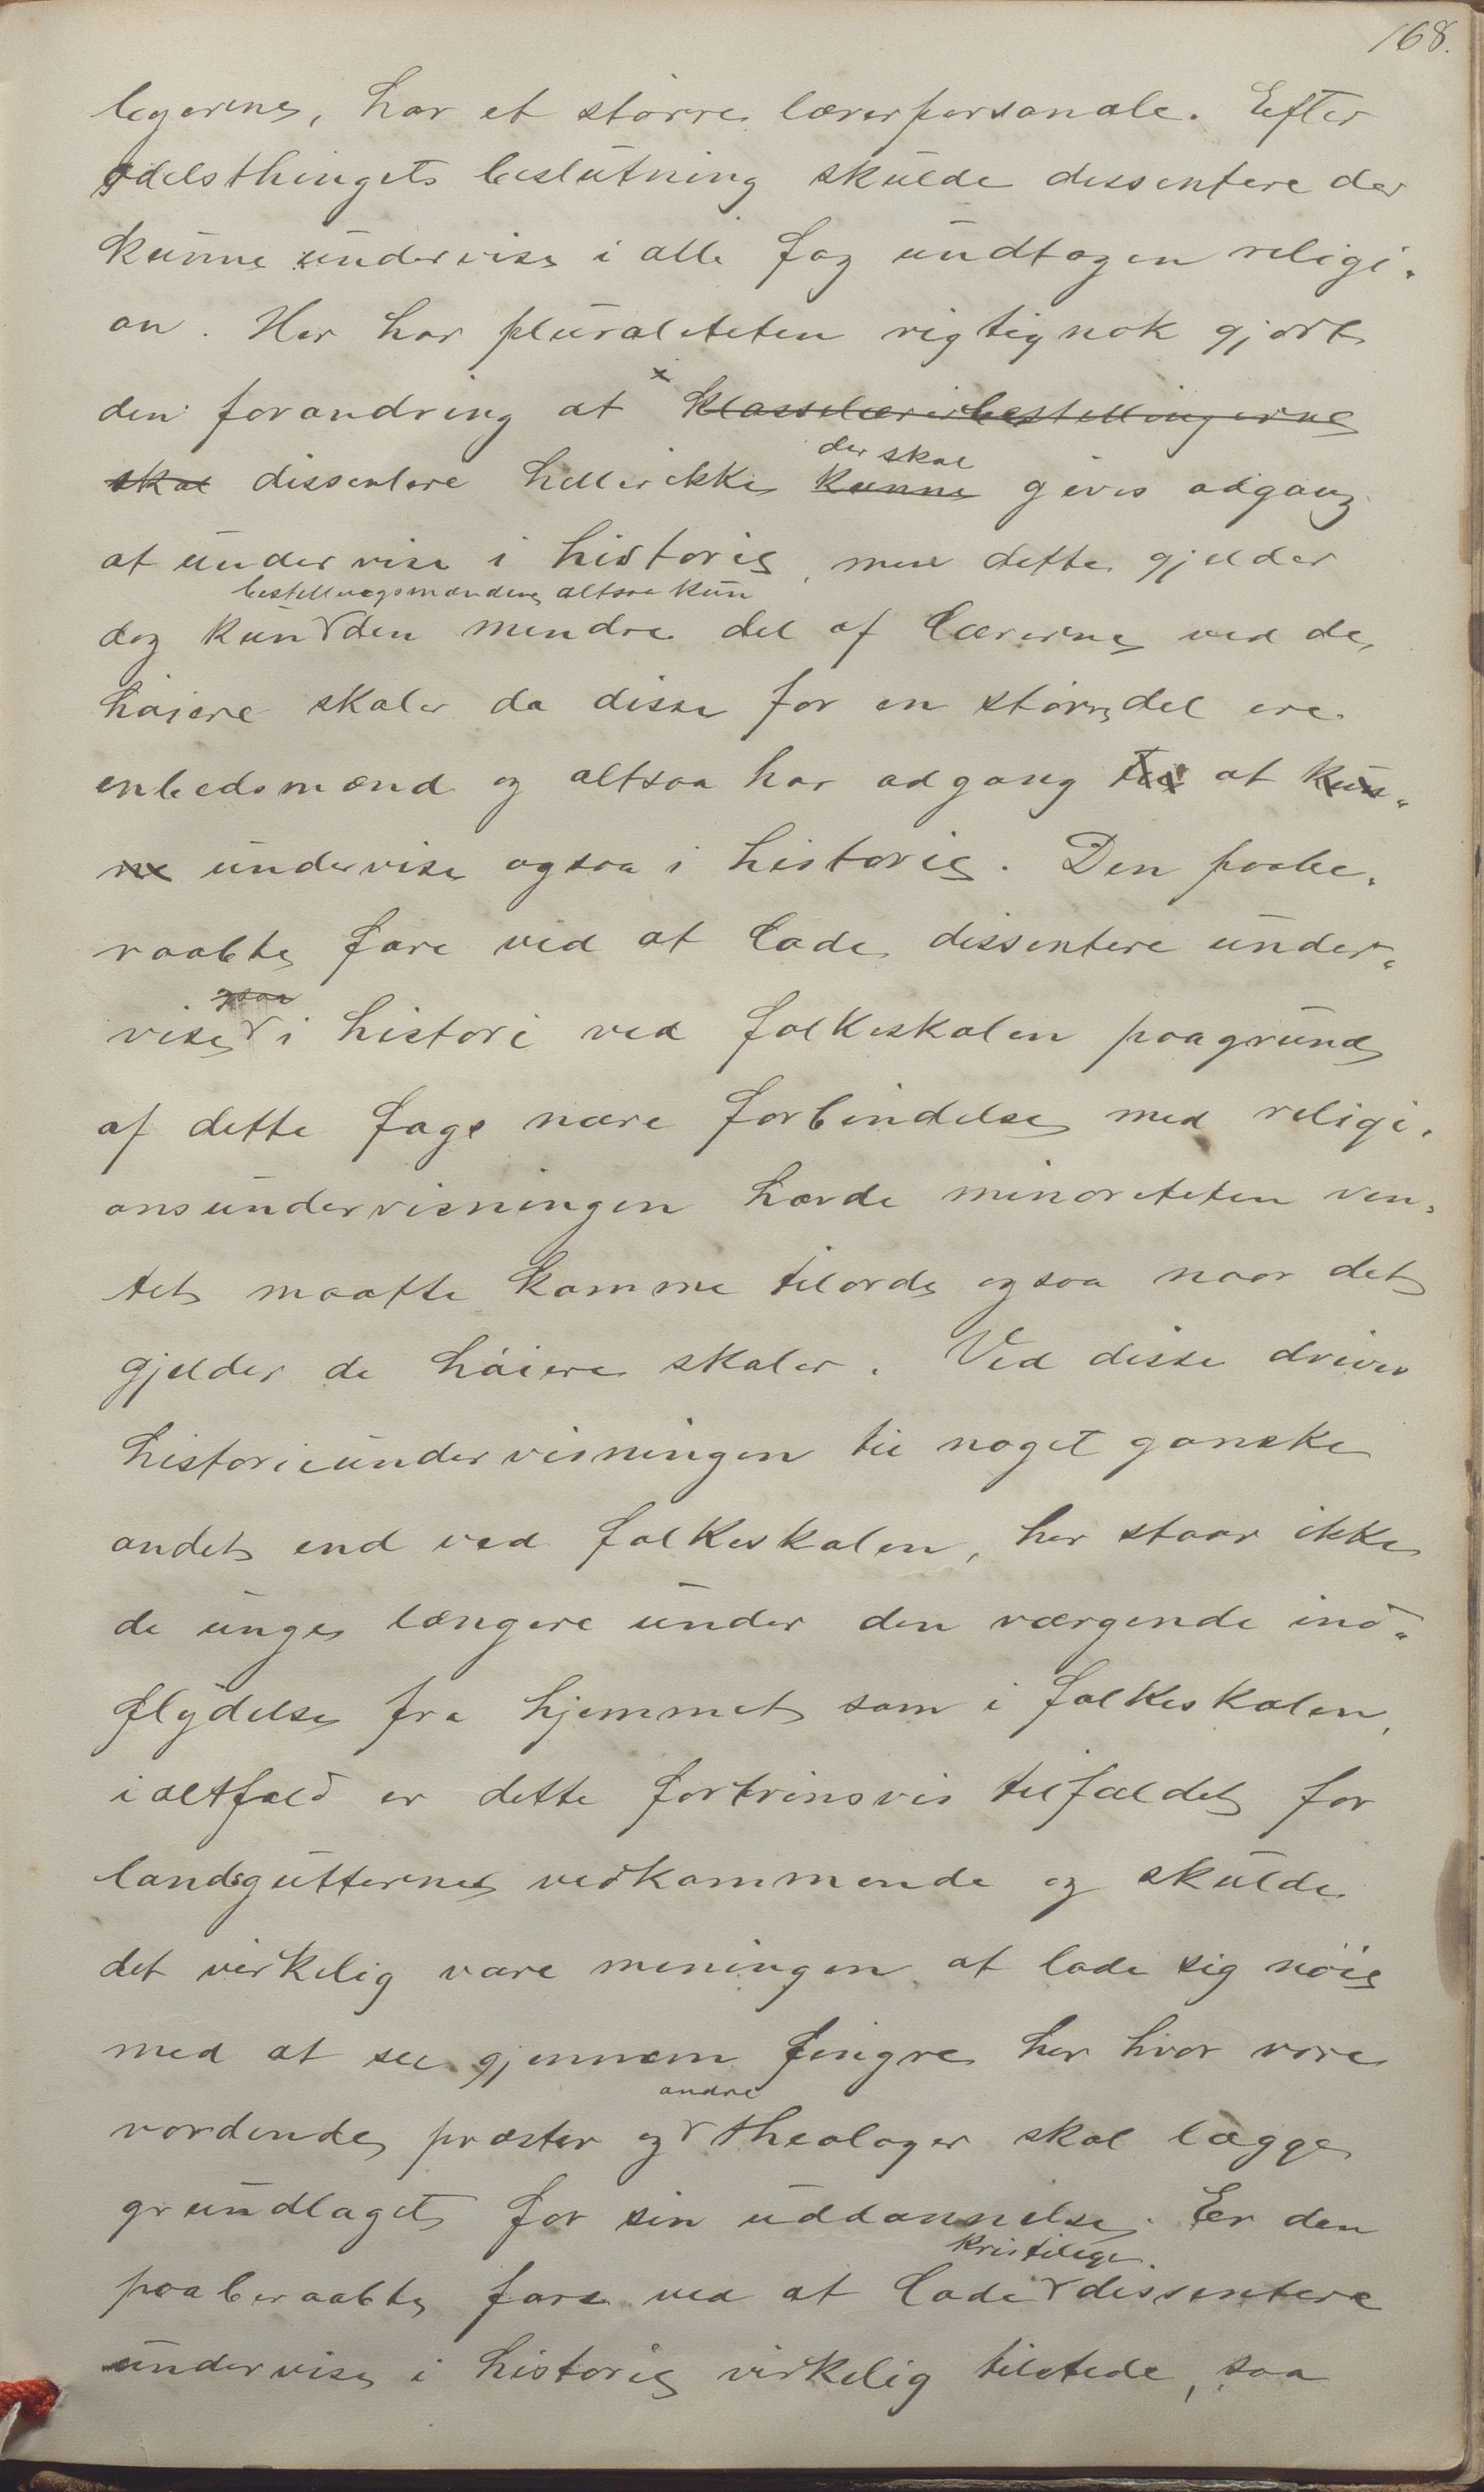 168.
legerne, har et større lærerpersonale. Efter
odelsthingets beslutning skulde dissentere der
kunne undervise i alle fag undtagen religi-
on. Her har pluraliteten rigtignok gjort
den forandring at x klasselærerbestillingerne
der skal
skal dissentere heller ikke kunne gives adgang
at undervise i historie, men dette gjelder
bestillingsmændene altsaa kun
dog kun den mindre del af lærerne ved de
høiere skoler da disse for en større del ere
enbedsmænd og altsaa har adgang til at kun-
ne undervise ogsaa i historie. Den paabe-
raabte fare ved at lade dissentere under-
ogsaa
vise i histori ved folkeskolen paagrund
af dette fags nære forbindelse med religi-
onsundervisningen havde minoriteten ven-
tet maatte komme tilorde ogsaa naar det
gjelder de høiere skoler. Ved disse drives
historieundervisningen til noget ganske
andet end ved folkeskolen, her staar ikke
de unge længere under den værgende ind-
flydelse fra hjemmet som i folkeskolen,
ialtfald er dette fortrinsvis tilfældet for
landsgutternes vedkommende og skulde
det virkelig være meningen at lade sig nøie
med at see gjennem fingre her hvor vore
andre
vordende præster og theologer skal lægge
grundlaget for sin uddannelse. Er den
kristelige
paaberaabte fare ved at lade dissentere
undervise i historie virkelig tilstede, saa